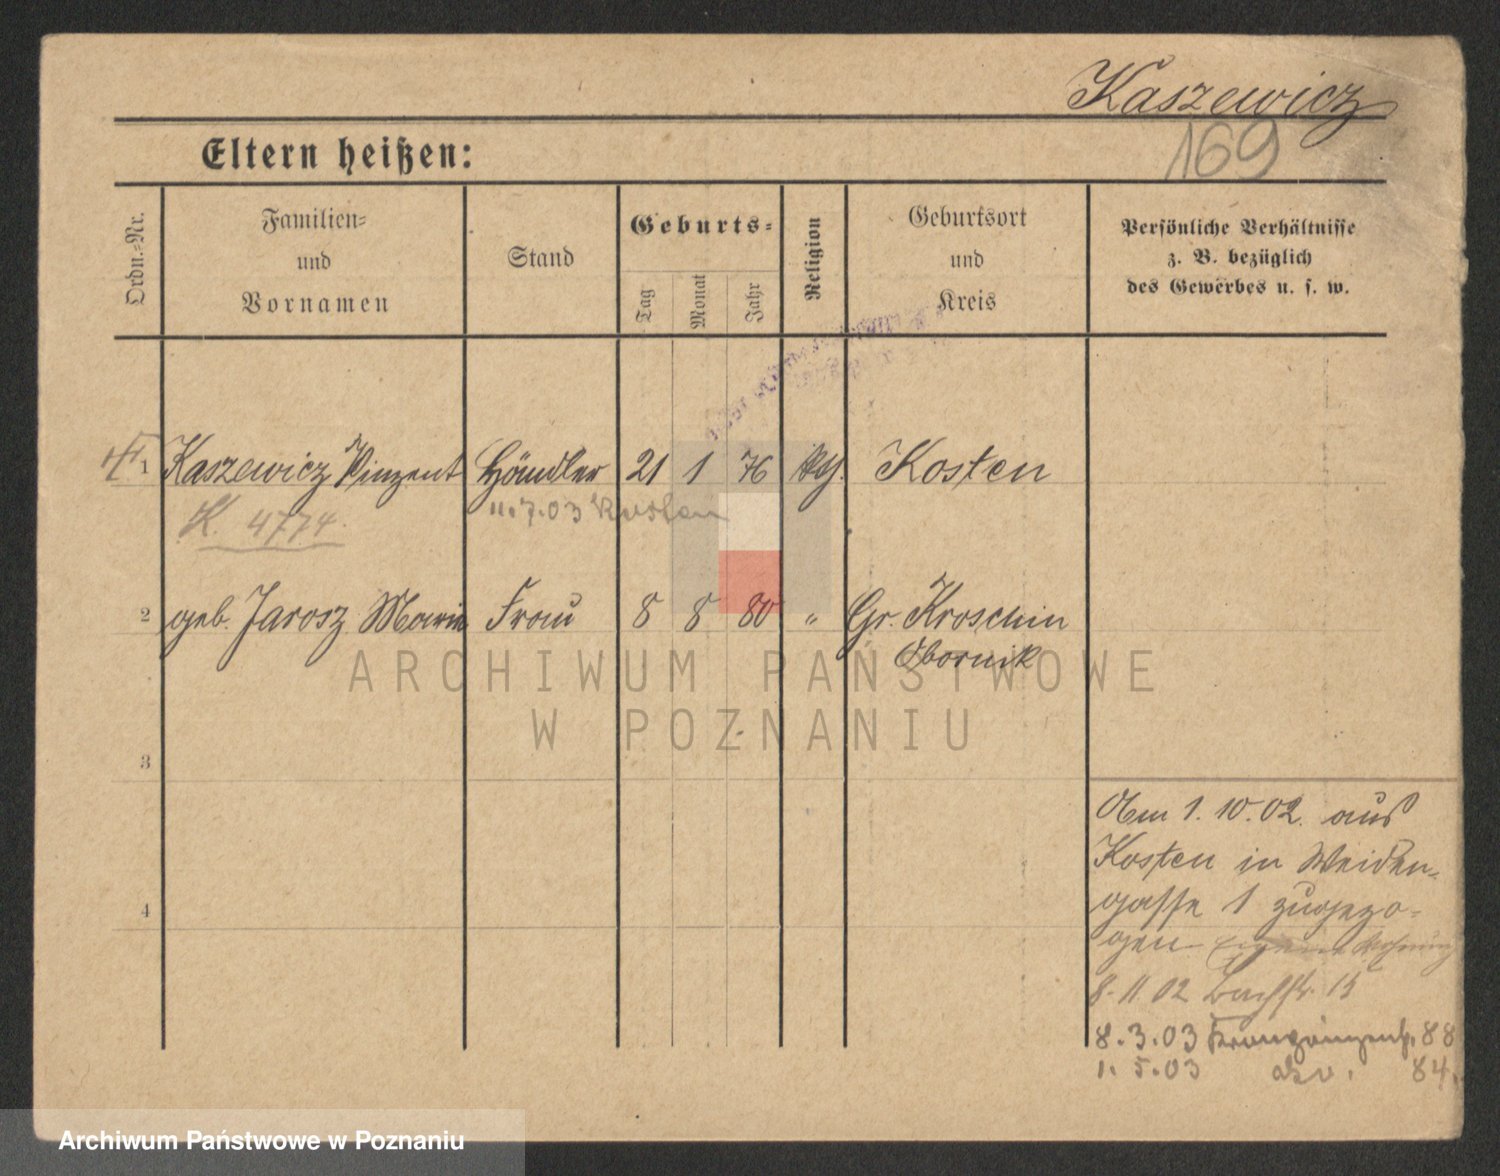 Kaszewicz
169
Eltern heißen:
Ordn.=Nr.
Familien=
und
Vornamen
Stand
Geburts=
Tag
Monat
Jahr
Religion
Geburtsort
und
Kreis
Persönliche Verhältnisse
z. B. bezüglich
des Gewerbes u. s. w.
1 Kaszewicz Vinzent Händler 21 1 76 kth. Kosten
K. 4774.
11.7.03 Kosten
2 geb. Jarosz Marie Frau 8 8 80 " Gr. Kroschin
Obornik
3
4
Am 1.10.02. aus
Kosten in Weiden-
gasse 1 zugezo-
gen Wohnung
8.11.02 Bachstr. 15
8.3.03 Kronprinzenstr. 88
1.5.03 84.
ARCHIWUM PAŃSTWOWE
W POZNANIU
Archiwum Państwowe w Poznaniu